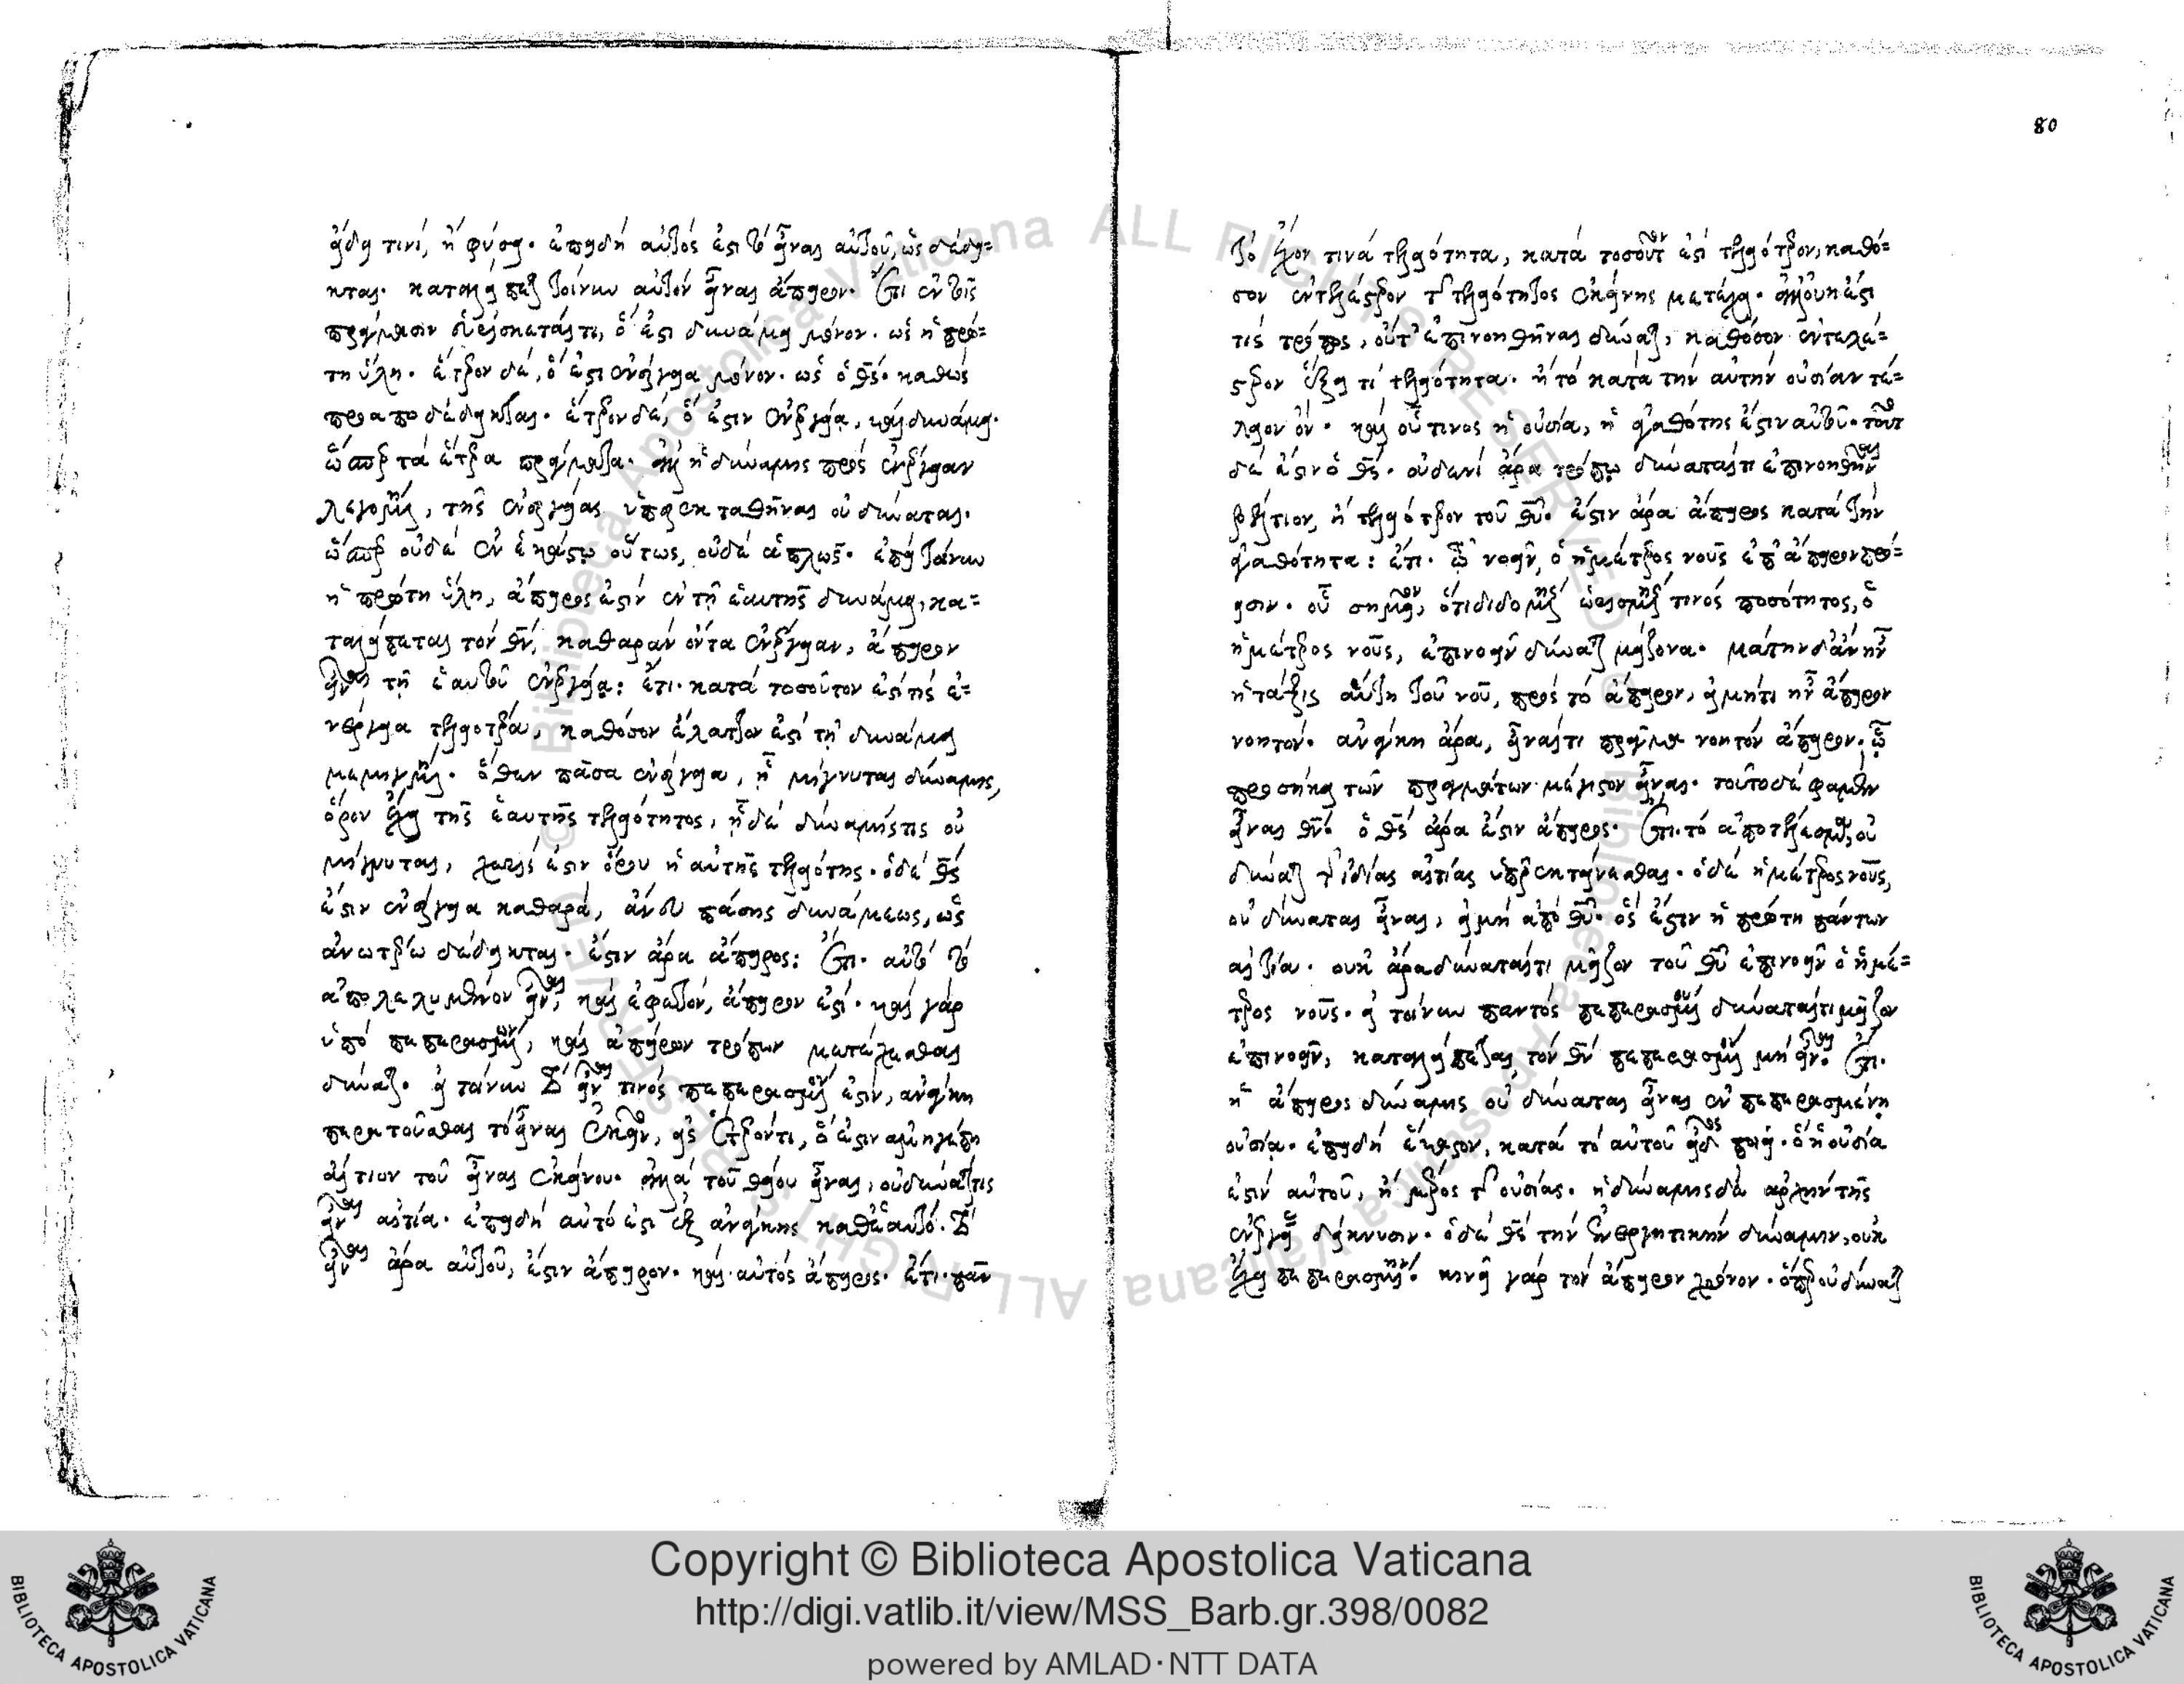 εἴδει τινί, ἢ φύσει. ἐπειδὴ αὐτός ἐστι τὸ εἶναι αὐτοῦ, ὡς δέδει=
κται. καταλείπεται τοίνυν αὐτὸν εἶναι ἄπειρον. Ἔτι ἐν τοῖς
πράγμασιν εὑρίσκεταί τι, ὅ ἐστι δυνάμει μόνον. ὡς ἡ πρώ=
τη ὕλη. ἕτερον δέ, ὅ ἐστι ἐνέργεια μόνον. ὡς ὁ θς. καθὼς
προαποδέδεικται. ἕτερον δέ, ὅ ἐστιν ἐνεργείᾳ, καὶ δυνάμει.
ὥσπερ τὰ ἕτερα πράγματα. ἀλλ' ἡ δύναμις πρὸς ἐνέργειαν
λεγομένη, τῆς ἐνεργείας ὑπερεκταθῆναι οὐ δύναται.
ὥσπερ οὐδὲ ἐν ἑκάστῳ οὕτως, οὐδὲ ἁπλῶς. ἐπεὶ τοίνυν
ἡ πρώτη ὕλη, ἄπειρός ἐστιν ἐν τῇ ἑαυτῆς δυνάμει, κα=
ταλείπεται τὸν θν, καθαρὰν ὄντα ἐνέργειαν, ἄπειρον
εἶναι τῇ ἑαυτοῦ ἐνεργείᾳ: ἔτι. κατὰ τοσοῦτον ἐστί τις ἐ=
νέργεια τελειοτέρα, καθόσον ἔλαττον ἐστὶ τῇ δυνάμει
μεμιγμένη. ὅθεν πᾶσα ἐνέργεια, ᾗ μίγνυται δύναμις,
ὅρον ἔχει τῆς ἑαυτῆς τελειότητος, ᾗ δὲ δύναμίς τις οὐ
μίγνυται, χωρίς ἐστιν ὅρου ἡ αὐτῆς τελειότης. ὁ δὲ θς
ἐστιν ἐνέργεια καθαρά, ἄνευ πάσης δυνάμεως, ὡς
ἀνωτέρω δέδεικται. ἔστιν ἄρα ἄπειρος: Ἔτι. αὐτὸ τὸ
ἀπολελυμένον εἶναι, καὶ ἄφετον, ἄπειρον ἐστί. καὶ γὰρ
ὑπὸ πεπερασμένων, καὶ ἀπείρων τρόπων μετέχεσθαι
δύναται. εἰ τοίνυν τὸ εἶναι τινὸς πεπερασμένον ἐστίν, ἀνάγκη
περατοῦσθαι τὸ εἶναι ἐκεῖνο, εἰς ἕτερόν τι, ὅ ἐστιν ἁμηγέπη
αἴτιον τοῦ εἶναι ἐκείνου. ἀλλὰ τοῦ θείου εἶναι, οὐ δύναταί τις
εἶναι αἰτία. ἐπειδὴ αὐτό ἐστι ἐξ ἀνάγκης καθ' ἑαυτό. τὸ
εἶναι ἄρα αὐτοῦ, ἐστιν ἄπειρον. καὶ αὐτὸς ἄπειρος. ἔτι. πᾶν
80
τὸ ἔχον τινὰ τελειότητα, κατὰ τοσοῦτο ἐστὶ τελειότερον, καθό=
σον ἐντελέστερον τῆς τελειότητος ἐκείνης μετέχει. ἀλλ' οὐκ ἔστι
τίς τρόπος, οὔτ' ἐπινοηθῆναι δύναται, καθόσον ἐντελέ=
στερον ἕξει τὶ τελειότητα. ἢ τὸ κατὰ τὴν αὑτὴν οὐσίαν τέ=
λειον ὄν. καὶ οὗτινος ἡ οὐσία, ἡ ἀγαθότης ἐστιν αὐτοῦ. τοῦτο
δέ ἐστιν ὁ θς. οὐδενὶ ἄρα τρόπῳ δύναταί τι ἐπινοηθῆναι
βέλτιον, ἢ τελειότερον τοῦ θυ. ἔστιν ἄρα ἄπειρος κατὰ τὴν
ἀγαθότητα: ἔτι. τῷ νοεῖν, ὁ ἡμέτερος νοῦς ἐπ' ἄπειρον πρό=
εισιν. οὗ σημεῖον, ὅτι διδομένης ὡρισμένης τινὸς ποσότητος, ὁ
ἡμέτερος νοῦς, ἐπινοεῖν δύναται μείζονα. μάτην δ' ἂν ἦν
ἡ τάξις αὕτη τοῦ νοῦ, πρὸς τὸ ἄπειρον, εἰ μή τι ἦν ἄπειρον
νοητόν. ἀνάγκη ἄρα, εἶναί τι πρᾶγμα νοητὸν ἄπειρον. ᾧ
προσήκει τῶν πραγμάτων μέγιστον εἶναι. τοῦτο δέ φαμεν
εἶναι θν. ὁ θς ἄρα ἐστιν ἄπειρος. Ἔτι. τὸ ἀποτέλεσμα, οὐ
δύναται τῆς ἰδίας αἰτίας ὑπερεκτείνεσθαι. ὁ δὲ ἡμέτερος νοῦς,
οὐ δύναται εἶναι, εἰ μὴ ἀπὸ θυ. ὅς ἐστιν ἡ πρώτη πάντων
αἰτία. οὐκ ἄρα δύναταί τι μεῖζον τοῦ θυ ἐπινοεῖν ὁ ἡμέ=
τερος νοῦς. εἰ τοίνυν παντὸς πεπερασμένου δύναταί τι μεῖζον
ἐπινοεῖν, καταλείπεται, τὸν θν πεπερασμένον μὴ εἶναι. Ἔτι.
ἡ ἄπειρος δύναμις οὐ δύναται εἶναι ἐν πεπερασμένῃ
οὐσίᾳ. ἐπειδὴ ἕκαστον, κατὰ τὸ αὐτοῦ εἶδος ποιεῖ. ὃ ἢ οὐσία
ἐστὶν αὐτοῦ, ἢ μέρος τῆς οὐσίας. ἡ δύναμις δὲ ἀρχὴν τῆς
ἐνεργείας δείκνυσιν. ὁ δὲ θς τὴν ἐνεργητικὴν δύναμιν, οὐκ
ἔχει πεπερασμένην. κινεῖ γὰρ τὸν ἄπειρον χρόνον. ὅπερ οὐ δύναται